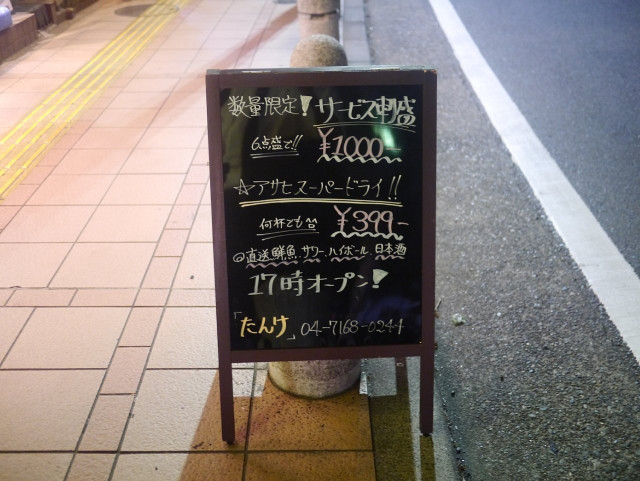 数量限定!サービス刺盛
6点盛で!! ¥1000-
☆アサヒスーパードライ!!
何杯でも ¥399-
直送鮮魚、サワー、ハイボール、日本酒
17時オープン!
「たんけ」04-7168-0244